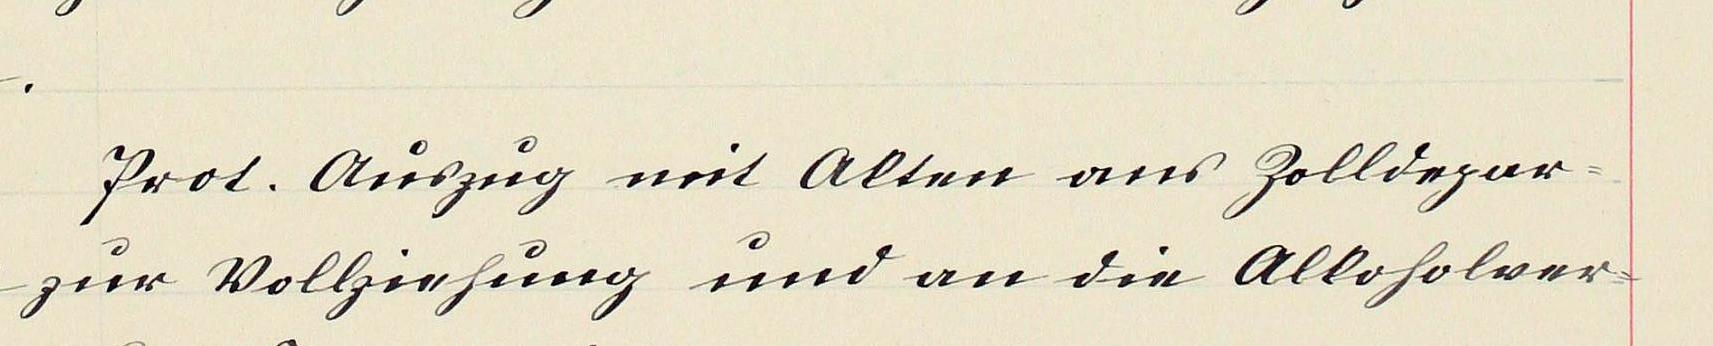 Prot. Auszug mit Akten ans Zolldepar-
zur Vollziehung und an die Alkoholver-